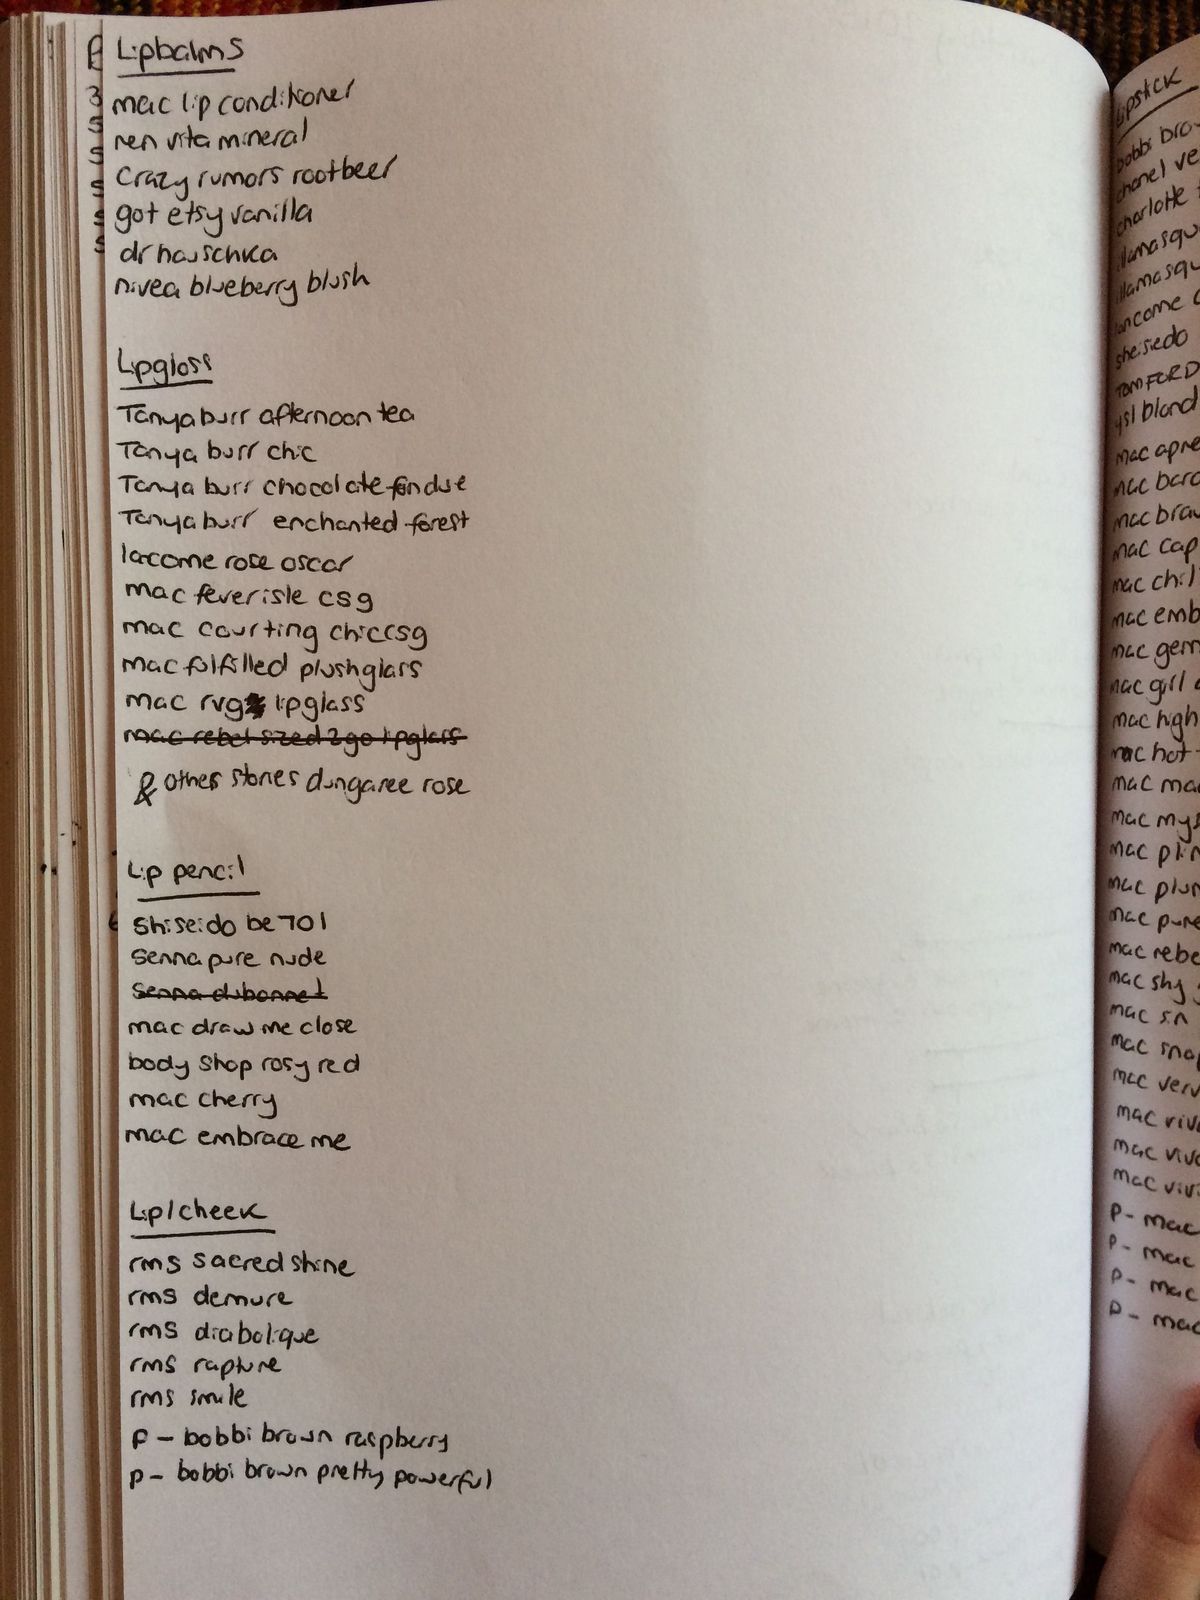 Lipbalms
mac lip conditioner
ren vita mineral
Crazy rumors rootbeer
got etsy vanilla
dr hauschka
nivea blueberry blush
Lipgloss
Tanya burr afternoon tea
Tanya burr chic
Tanya burr chocolate fondue
Tanya burr enchanted forest
lacome rose oscar
mac fever isle csg
mac courting chic csg
mac fulfilled plushglass
mac rvg lipglass
mac rebel sized 2 go lipglass
& other stories dungaree rose
Lip pencil
Shiseido be701
Senna pure nude
Senna dubonnet
mac draw me close
body shop rosy red
mac cherry
mac embrace me
Lip/cheek
rms sacred shine
rms demure
rms diabolique
rms rapture
rms smile
P - bobbi brown raspberry
P - bobbi brown pretty powerful
Lipstick
bobbi brow
chanel ve
charlotte t
illamasqu
illamasqu
lancome
sheisiedo
TOM FORD
ysl blond
mac apre
mac baro
mac brav
mac cap
mac chil
mac emb
mac gem
mac girl
mac high
mac hot
mac mac
mac mys
mac plin
mac plum
mac pure
mac rebe
mac shy
mac sin
mac snap
mac verv
mac viva
mac viva
mac vivi
P - mac
P - mac
P - mac
P - mac